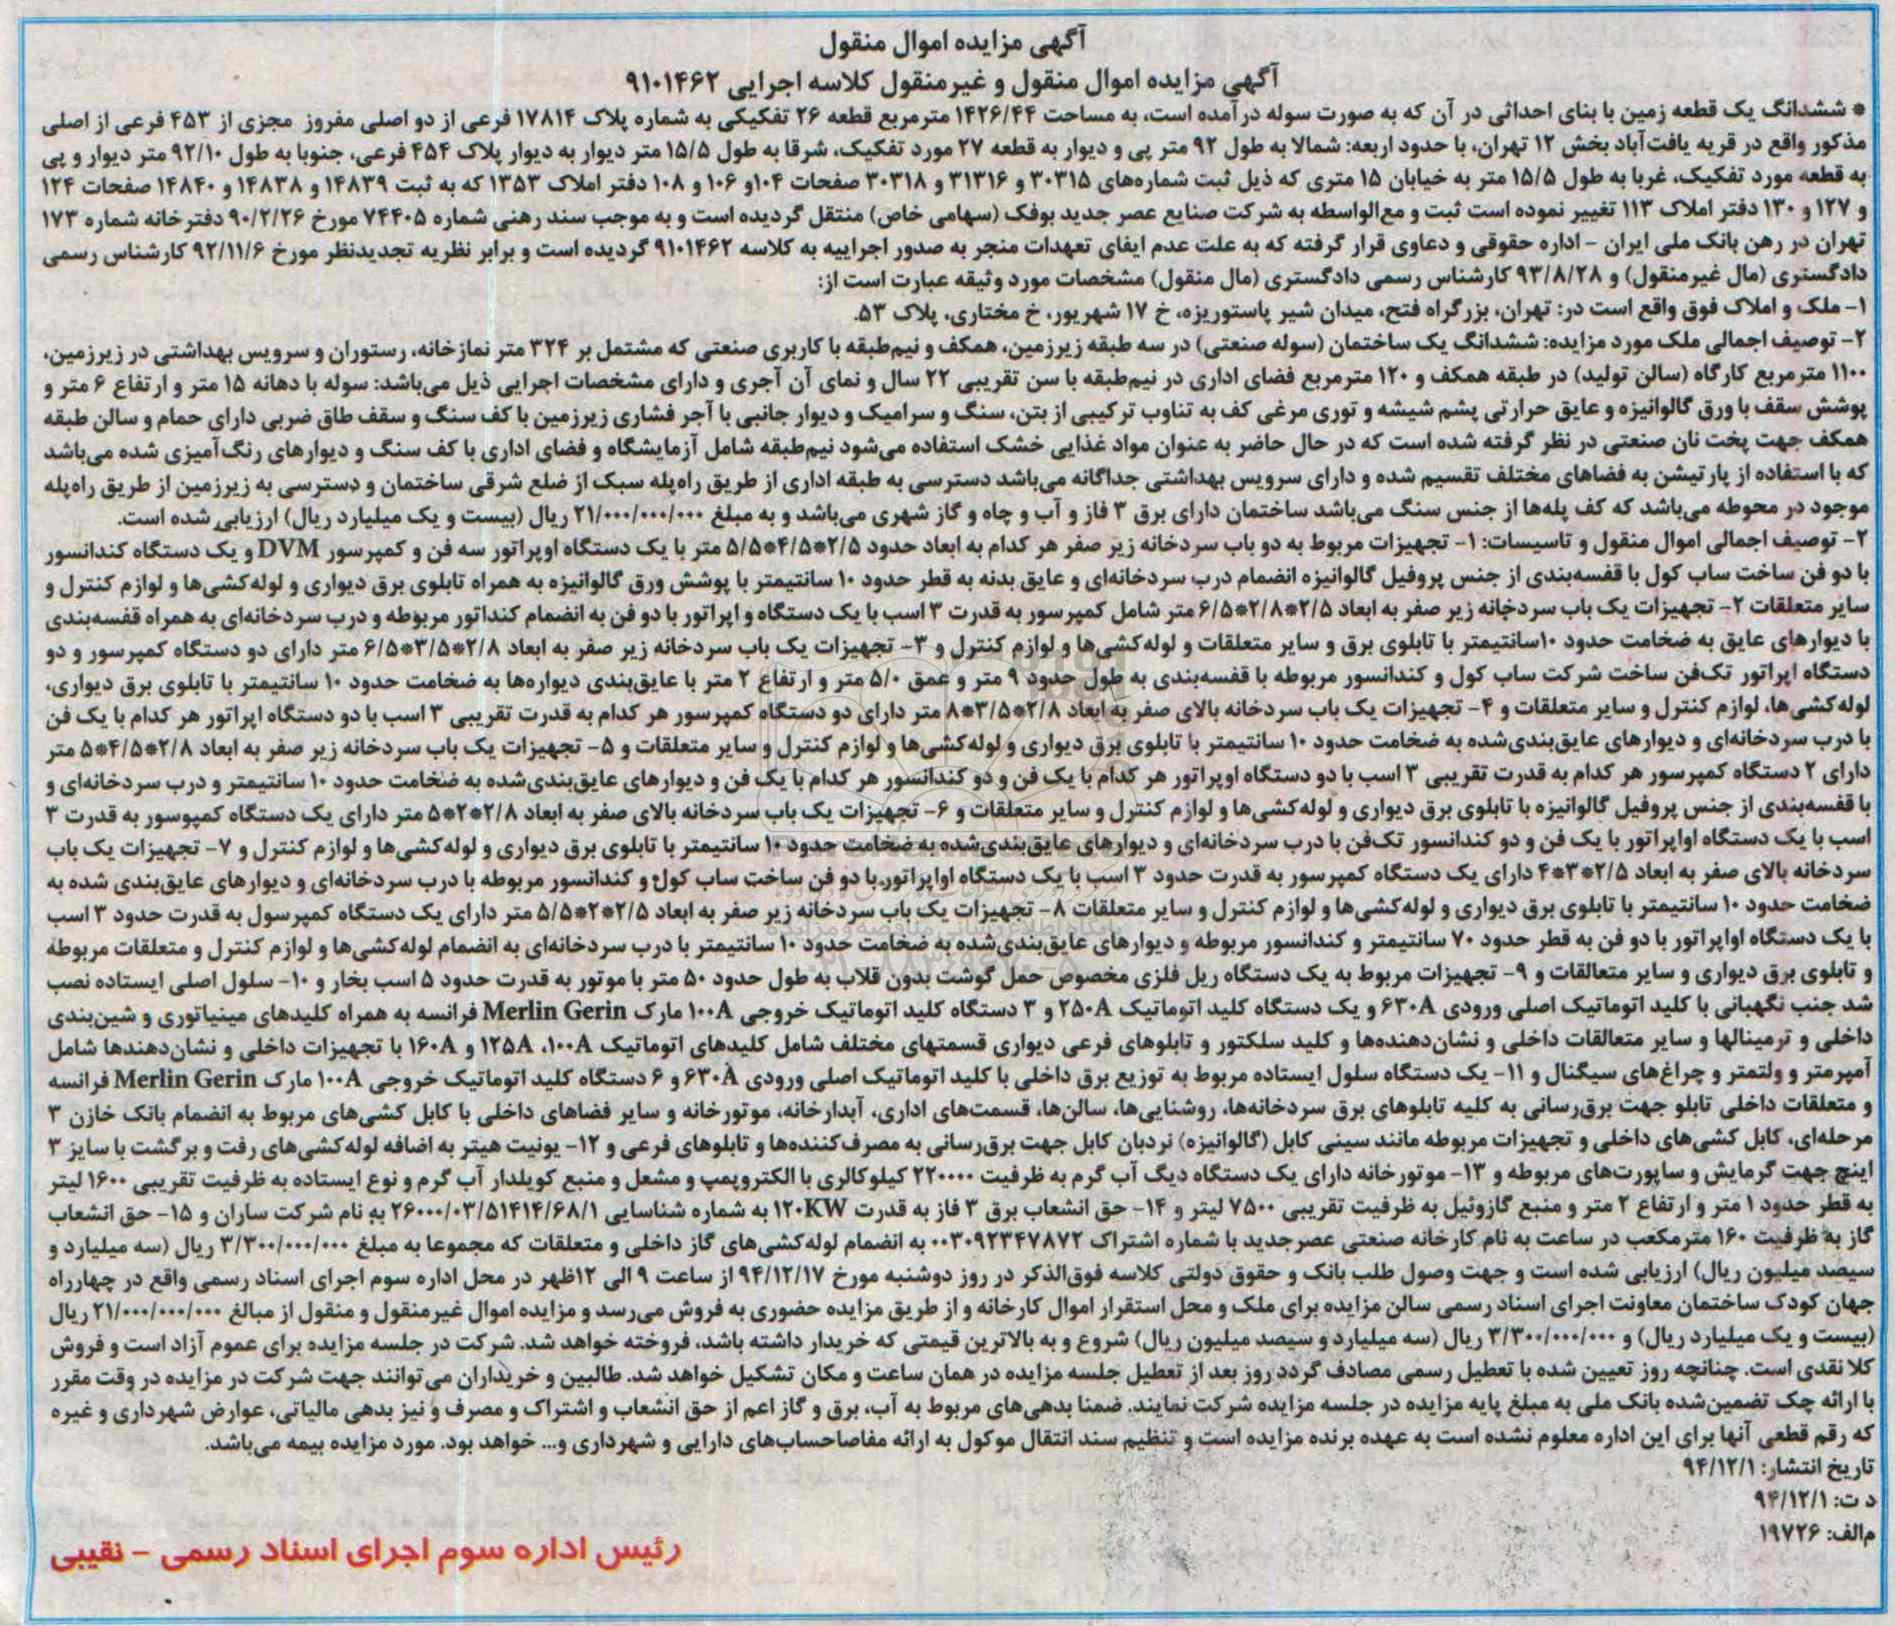 آگهی مزایده اموال منقول
آگهی مزایده اموال منقول و غیرمنقول کلاسه اجرایی ۹۱۰۱۴۶۲
* ششدانگ یک قطعه زمین با بنای احداثی در آن که به صورت سوله درآمده است، به مساحت ۱۴۲۶/۴۴ مترمربع قطعه ۲۶ تفکیکی به شماره پلاک ۱۷۸۱۴ فرعی از دو اصلی مفروز مجزی از ۴۵۳ فرعی از اصلی
مذکور واقع در قریه یافت‌آباد بخش ۱۲ تهران، با حدود اربعه: شمالا به طول ۹۲ متر پی و دیوار به قطعه ۲۷ مورد تفکیک، شرقا به طول ۱۵/۵ متر دیوار به دیوار پلاک ۴۵۴ فرعی، جنوبا به طول ۹۲/۱۰ متر دیوار و پی
به قطعه مورد تفکیک، غربا به طول ۱۵/۵ متر به خیابان ۱۵ متری که ذیل ثبت شماره‌های ۳۰۳۱۵ و ۳۱۳۱۶ و ۳۰۳۱۸ صفحات ۱۰۴و ۱۰۶ و ۱۰۸ دفتر املاک ۱۳۵۳ که به ثبت ۱۴۸۳۹ و ۱۴۸۳۸ و ۱۴۸۴۰ صفحات ۱۲۴
و ۱۲۷ و ۱۳۰ دفتر املاک ۱۱۳ تغییر نموده است ثبت و مع‌الواسطه به شرکت صنایع عصر جدید بوفک (سهامی خاص) منتقل گردیده است و به موجب سند رهنی شماره ۷۴۴۰۵ مورخ ۹۰/۲/۲۶ دفترخانه شماره ۱۷۳
تهران در رهن بانک ملی ایران - اداره حقوقی و دعاوی قرار گرفته که به علت عدم ایفای تعهدات منجر به صدور اجراییه به کلاسه ۹۱۰۱۴۶۲ گردیده است و برابر نظریه تجدیدنظر مورخ ۹۲/۱۱/۶ کارشناس رسمی
دادگستری (مال غیرمنقول) و ۹۳/۸/۲۸ کارشناس رسمی دادگستری (مال منقول) مشخصات مورد وثیقه عبارت است از:
۱- ملک و املاک فوق واقع است در: تهران، بزرگراه فتح، میدان شیر پاستوریزه، خ ۱۷ شهریور، خ مختاری، پلاک ۵۳.
۲- توصیف اجمالی ملک مورد مزایده: ششدانگ یک ساختمان (سوله صنعتی) در سه طبقه زیرزمین، همکف و نیم‌طبقه با کاربری صنعتی که مشتمل بر ۳۲۴ متر نمازخانه، رستوران و سرویس بهداشتی در زیرزمین،
۱۱۰۰ مترمربع کارگاه (سالن تولید) در طبقه همکف و ۱۲۰ مترمربع فضای اداری در نیم‌طبقه با سن تقریبی ۲۲ سال و نمای آن آجری و دارای مشخصات اجرایی ذیل می‌باشد: سوله با دهانه ۱۵ متر و ارتفاع ۶ متر و
پوشش سقف با ورق گالوانیزه و عایق حرارتی پشم شیشه و توری مرغی کف به تناوب ترکیبی از بتن، سنگ و سرامیک و دیوار جانبی با آجر فشاری زیرزمین با کف سنگ و سقف طاق ضربی دارای حمام و سالن طبقه
همکف جهت پخت نان صنعتی در نظر گرفته شده است که در حال حاضر به عنوان مواد غذایی خشک استفاده می‌شود نیم‌طبقه شامل آزمایشگاه و فضای اداری با کف سنگ و دیوارهای رنگ‌آمیزی شده می‌باشد
که با استفاده از پارتیشن به فضاهای مختلف تقسیم شده و دارای سرویس بهداشتی جداگانه می‌باشد دسترسی به طبقه اداری از طریق راه‌پله سبک از ضلع شرقی ساختمان و دسترسی به زیرزمین از طریق راه‌پله
موجود در محوطه می‌باشد که کف پله‌ها از جنس سنگ می‌باشد ساختمان دارای برق ۳ فاز و آب و چاه و گاز شهری می‌باشد و به مبلغ ۲۱/۰۰۰/۰۰۰/۰۰۰ ریال (بیست و یک میلیارد ریال) ارزیابی شده است.
۲- توصیف اجمالی اموال منقول و تاسیسات: ۱- تجهیزات مربوط به دو باب سردخانه زیر صفر هر کدام به ابعاد حدود ۲/۵*۴/۵*۵/۵ متر با یک دستگاه اوپراتور سه فن و کمپرسور DVM و یک دستگاه کندانسور
با دو فن ساخت ساب کول با قفسه‌بندی از جنس پروفیل گالوانیزه انضمام درب سردخانه‌ای و عایق بدنه به قطر حدود ۱۰ سانتیمتر با پوشش ورق گالوانیزه به همراه تابلوی برق دیواری و لوله‌کشی‌ها و لوازم کنترل و
سایر متعلقات ۲- تجهیزات یک باب سردخانه زیر صفر به ابعاد ۲/۵*۲/۸*۶/۵ متر شامل کمپرسور به قدرت ۳ اسب با یک دستگاه و اپراتور با دو فن به انضمام کنداتور مربوطه و درب سردخانه‌ای به همراه قفسه‌بندی
با دیوارهای عایق به ضخامت حدود ۱۰سانتیمتر با تابلوی برق و سایر متعلقات و لوله‌کشی‌ها و لوازم کنترل و ۳- تجهیزات یک باب سردخانه زیر صفر به ابعاد ۲/۸*۳/۵*۶/۵ متر دارای دو دستگاه کمپرسور و دو
دستگاه اپراتور تک‌فن ساخت شرکت ساب کول و کندانسور مربوطه با قفسه‌بندی به طول حدود ۹ متر و عمق ۵/۰ متر و ارتفاع ۲ متر با عایق‌بندی دیواره‌ها به ضخامت حدود ۱۰ سانتیمتر با تابلوی برق دیواری،
لوله‌کشی‌ها، لوازم کنترل و سایر متعلقات و ۴- تجهیزات یک باب سردخانه بالای صفر به ابعاد ۲/۸*۳/۵*۸ متر دارای دو دستگاه کمپرسور هر کدام به قدرت تقریبی ۳ اسب با دو دستگاه اپراتور هر کدام با یک فن
با درب سردخانه‌ای و دیوارهای عایق‌بندی‌شده به ضخامت حدود ۱۰ سانتیمتر با تابلوی برق دیواری و لوله‌کشی‌ها و لوازم کنترل و سایر متعلقات و ۵- تجهیزات یک باب سردخانه زیر صفر به ابعاد ۲/۸*۴/۵*۵ متر
دارای ۲ دستگاه کمپرسور هر کدام به قدرت تقریبی ۳ اسب با دو دستگاه اوپراتور هر کدام با یک فن و دو کندانسور هر کدام با یک فن و دیوارهای عایق‌بندی‌شده به ضخامت حدود ۱۰ سانتیمتر و درب سردخانه‌ای و
با قفسه‌بندی از جنس پروفیل گالوانیزه با تابلوی برق دیواری و لوله‌کشی‌ها و لوازم کنترل و سایر متعلقات و ۶- تجهیزات یک باب سردخانه بالای صفر به ابعاد ۲/۸*۲*۵ متر دارای یک دستگاه کمپوسور به قدرت ۳
اسب با یک دستگاه اواپراتور با یک فن و دو کندانسور تک‌فن با درب سردخانه‌ای و دیوارهای عایق‌بندی‌شده به ضخامت حدود ۱۰ سانتیمتر با تابلوی برق دیواری و لوله‌کشی‌ها و لوازم کنترل و ۷- تجهیزات یک باب
سردخانه بالای صفر به ابعاد ۲/۵*۳*۴ دارای یک دستگاه کمپرسور به قدرت حدود ۳ اسب با یک دستگاه اواپراتور با دو فن ساخت ساب کول و کندانسور مربوطه با درب سردخانه‌ای و دیوارهای عایق‌بندی شده به
ضخامت حدود ۱۰ سانتیمتر با تابلوی برق دیواری و لوله‌کشی‌ها و لوازم کنترل و سایر متعلقات ۸- تجهیزات یک باب سردخانه زیر صفر به ابعاد ۲/۵*۲*۵/۵ متر دارای یک دستگاه کمپرسول به قدرت حدود ۳ اسب
با یک دستگاه اواپراتور با دو فن به قطر حدود ۷۰ سانتیمتر و کندانسور مربوطه و دیوارهای عایق‌بندی‌شده به ضخامت حدود ۱۰ سانتیمتر با درب سردخانه‌ای به انضمام لوله‌کشی‌ها و لوازم کنترل و متعلقات مربوطه
و تابلوی برق دیواری و سایر متعالقات و ۹- تجهیزات مربوط به یک دستگاه ریل فلزی مخصوص حمل گوشت بدون قلاب به طول حدود ۵۰ متر با موتور به قدرت حدود ۵ اسب بخار و ۱۰- سلول اصلی ایستاده نصب
شد جنب نگهبانی با کلید اتوماتیک اصلی ورودی ۶۳۰A و یک دستگاه کلید اتوماتیک ۲۵۰A و ۳ دستگاه کلید اتوماتیک خروجی ۱۰۰A مارک Merlin Gerin فرانسه به همراه کلیدهای مینیاتوری و شین‌بندی
داخلی و ترمینالها و سایر متعالقات داخلی و نشان‌دهنده‌ها و کلید سلکتور و تابلوهای فرعی دیواری قسمتهای مختلف شامل کلیدهای اتوماتیک ۱۰۰A، ۱۲۵A و ۱۶۰A با تجهیزات داخلی و نشان‌دهندها شامل
آمپرمتر و ولتمتر و چراغ‌های سیگنال و ۱۱- یک دستگاه سلول ایستاده مربوط به توزیع برق داخلی با کلید اتوماتیک اصلی ورودی ۶۳۰A و ۶ دستگاه کلید اتوماتیک خروجی ۱۰۰A مارک Merlin Gerin فرانسه
و متعلقات داخلی تابلو جهت برق‌رسانی به کلیه تابلوهای برق سردخانه‌ها، روشنایی‌ها، سالن‌ها، قسمت‌های اداری، آبدارخانه، موتورخانه و سایر فضاهای داخلی با کابل کشی‌های مربوط به انضمام بانک خازن ۳
مرحله‌ای، کابل کشی‌های داخلی و تجهیزات مربوطه مانند سینی کابل (گالوانیزه) نردبان کابل جهت برق‌رسانی به مصرف‌کننده‌ها و تابلوهای فرعی و ۱۲- یونیت هیتر به اضافه لوله‌کشی‌های رفت و برگشت با سایز ۳
اینچ جهت گرمایش و ساپورت‌های مربوطه و ۱۳- موتورخانه دارای یک دستگاه دیگ آب گرم به ظرفیت ۲۲۰۰۰۰ کیلوکالری با الکتروپمپ و مشعل و منبع کویلدار آب گرم و نوع ایستاده به ظرفیت تقریبی ۱۶۰۰ لیتر
به قطر حدود ۱ متر و ارتفاع ۲ متر و منبع گازوئیل به ظرفیت تقریبی ۷۵۰۰ لیتر و ۱۴- حق انشعاب برق ۳ فاز به قدرت ۱۲۰KW به شماره شناسایی ۲۶۰۰۰/۰۳/۵۱۴۱۴/۶۸/۱ به نام شرکت ساران و ۱۵- حق انشعاب
گاز به ظرفیت ۱۶۰ مترمکعب در ساعت به نام کارخانه صنعتی عصرجدید با شماره اشتراک ۰۰۳۰۹۲۳۴۷۸۷۲ به انضمام لوله‌کشی‌های گاز داخلی و متعلقات که مجموعا به مبلغ ۳/۳۰۰/۰۰۰/۰۰۰ ریال (سه میلیارد و
سیصد میلیون ریال) ارزیابی شده است و جهت وصول طلب بانک و حقوق دولتی کلاسه فوق‌الذکر در روز دوشنبه مورخ ۹۴/۱۲/۱۷ از ساعت ۹ الی ۱۲ظهر در محل اداره سوم اجرای اسناد رسمی واقع در چهارراه
جهان کودک ساختمان معاونت اجرای اسناد رسمی سالن مزایده برای ملک و محل استقرار اموال کارخانه و از طریق مزایده حضوری به فروش می‌رسد و مزایده اموال غیرمنقول و منقول از مبالغ ۲۱/۰۰۰/۰۰۰/۰۰۰ ریال
(بیست و یک میلیارد ریال) و ۳/۳۰۰/۰۰۰/۰۰۰ ریال (سه میلیارد و سیصد میلیون ریال) شروع و به بالاترین قیمتی که خریدار داشته باشد، فروخته خواهد شد. شرکت در جلسه مزایده برای عموم آزاد است و فروش
کلا نقدی است. چنانچه روز تعیین شده با تعطیل رسمی مصادف گردد روز بعد از تعطیل جلسه مزایده در همان ساعت و مکان تشکیل خواهد شد. طالبین و خریداران می‌توانند جهت شرکت در مزایده در وقت مقرر
با ارائه چک تضمین‌شده بانک ملی به مبلغ پایه مزایده در جلسه مزایده شرکت نمایند. ضمنا بدهی‌های مربوط به آب، برق و گاز اعم از حق انشعاب و اشتراک و مصرف و نیز بدهی مالیاتی، عوارض شهرداری و غیره
که رقم قطعی آنها برای این اداره معلوم نشده است به عهده برنده مزایده است و تنظیم سند انتقال موکول به ارائه مفاصاحساب‌های دارایی و شهرداری و... خواهد بود. مورد مزایده بیمه می‌باشد.
تاریخ انتشار: ۹۴/۱۲/۱
د ت: ۹۴/۱۲/۱
م‌الف: ۱۹۷۲۶
رئیس اداره سوم اجرای اسناد رسمی - نقیبی